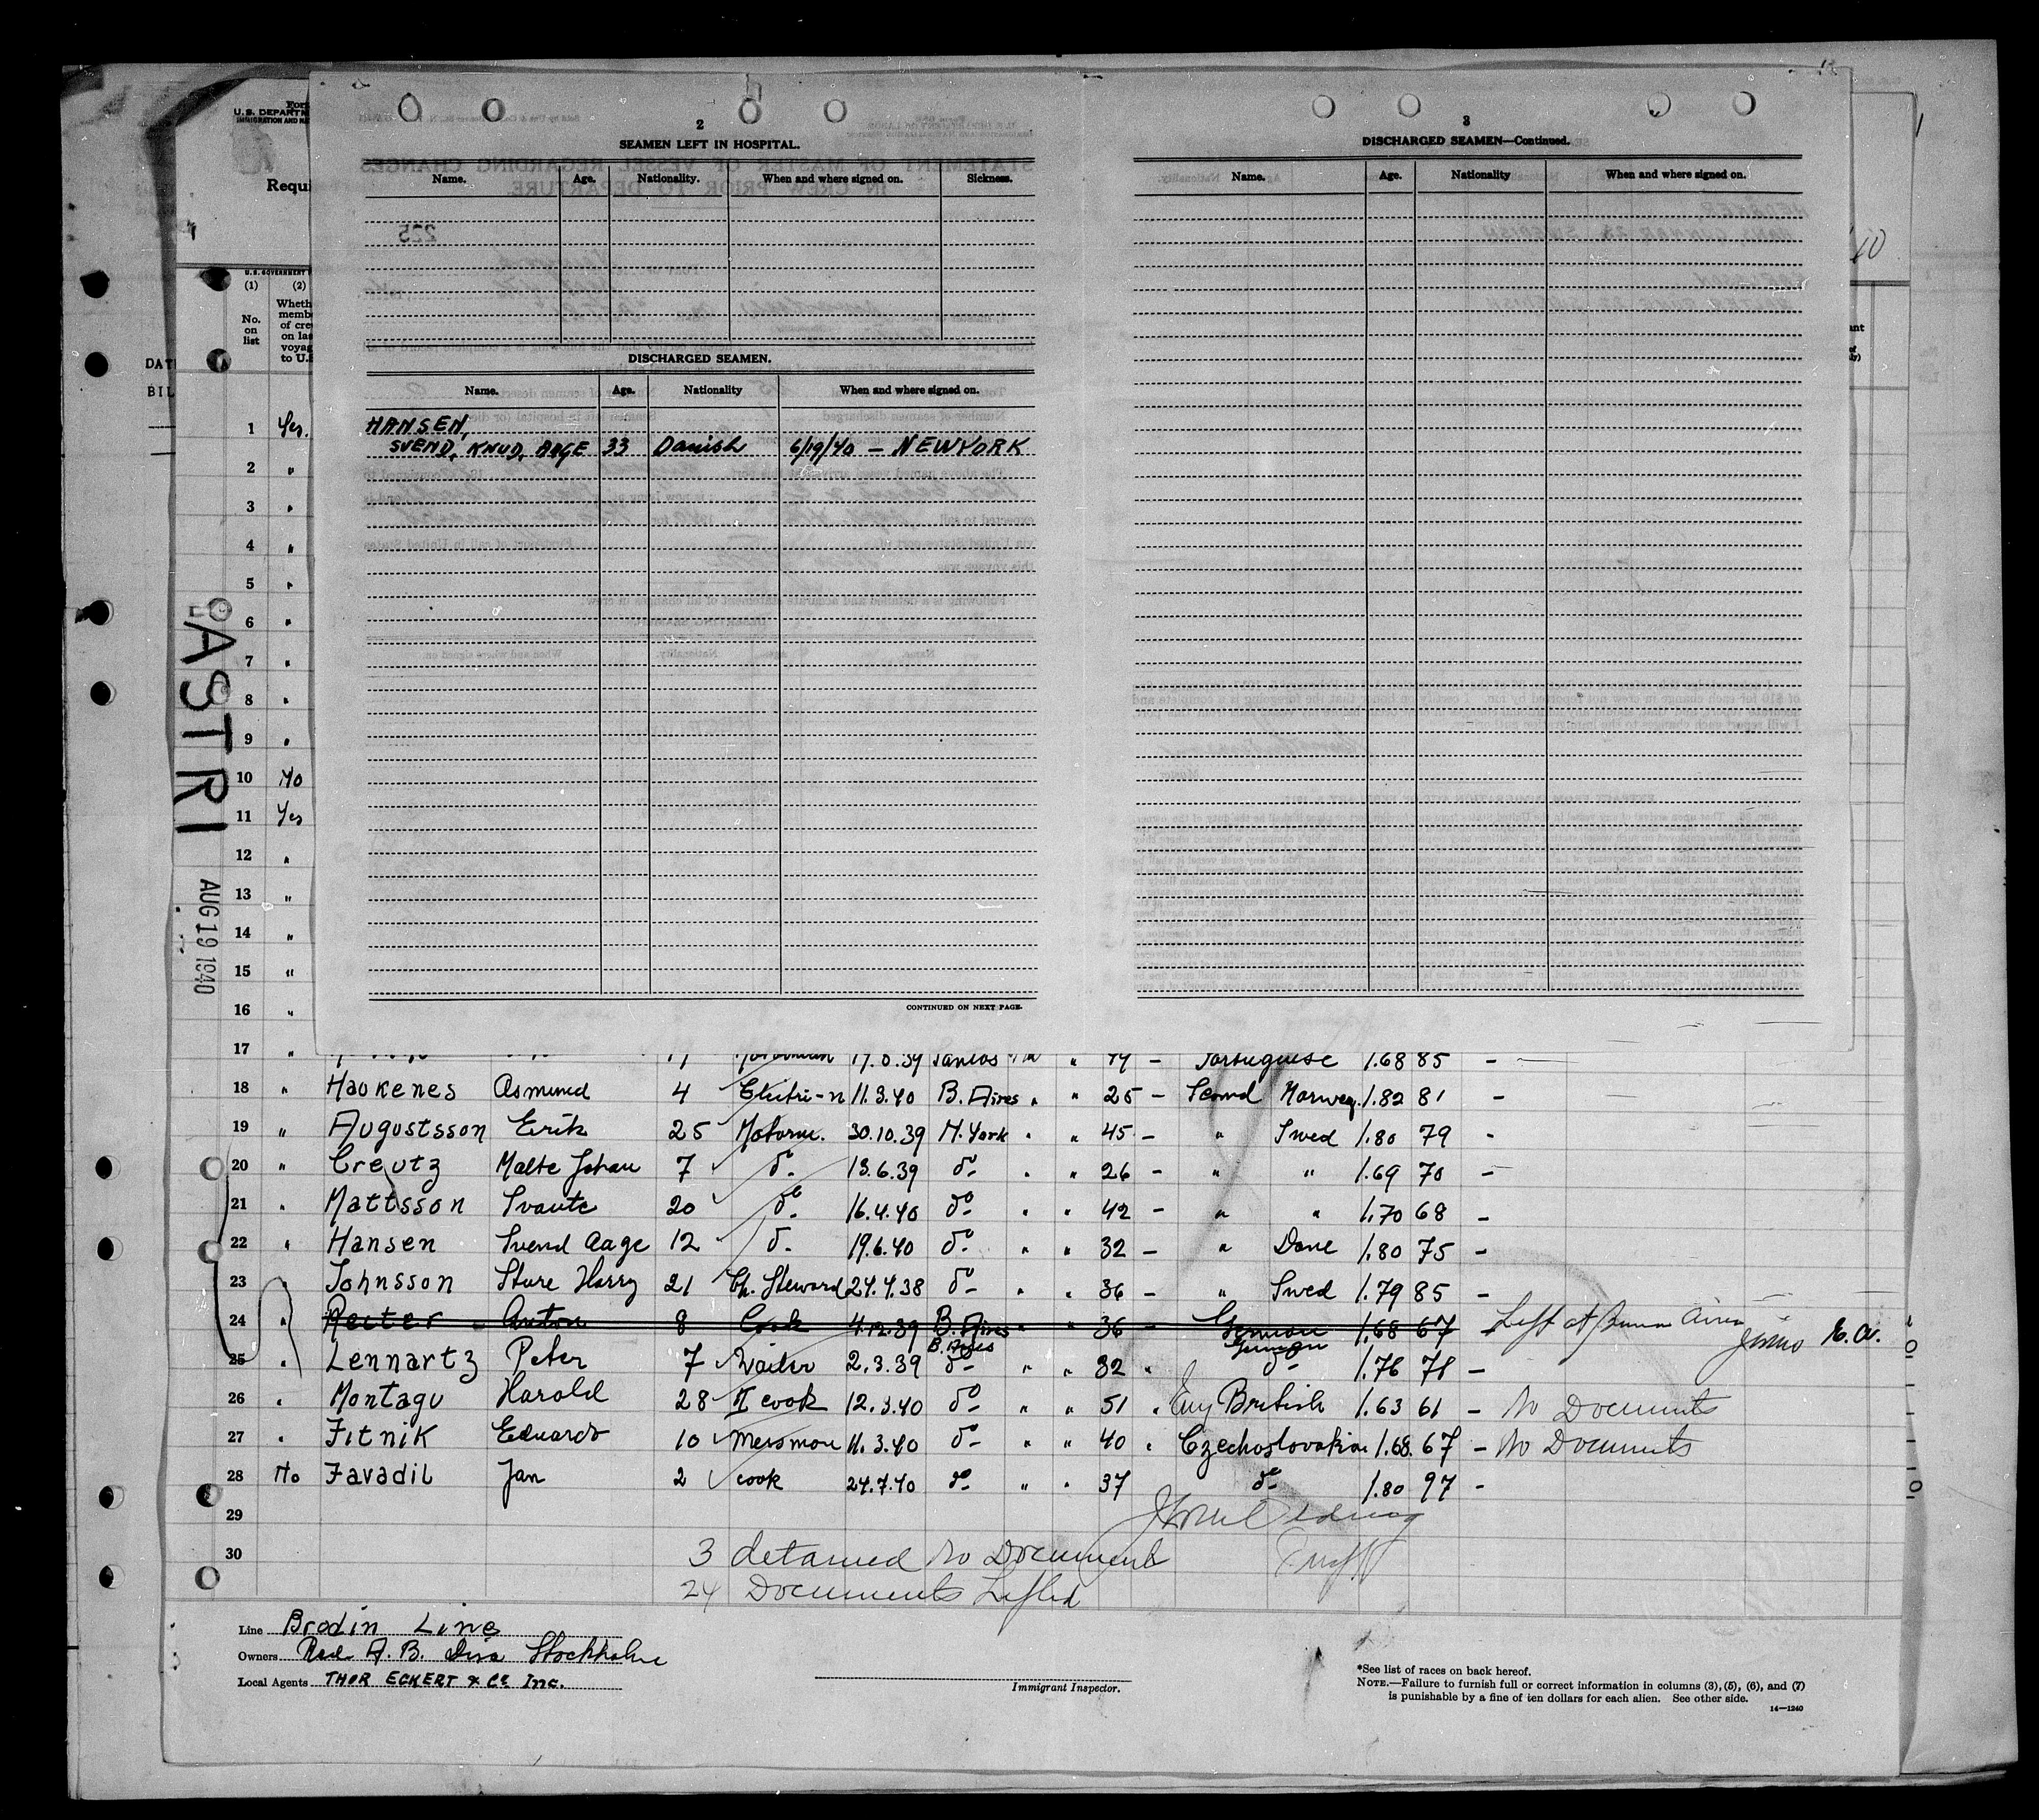 2
SEAMEN LEFT IN HOSPITAL.
Name. Age. Nationality. When and where signed on. Sickness.
DISCHARGED SEAMEN.
Name. Age. Nationality When and where signed on.
HANSEN,
SVEND, KNUD, AAGE 33 Danish 6/19/40 — NEWYORK
CONTINUED ON NEXT PAGE.
3
DISCHARGED SEAMEN—Continued.
Name. Age. Nationality When and where signed on.
Form
U.S. DEPARTM
IMMIGRATION AND NA
Requi
U.S. GOVERNMENT
(1) (2)
No. on list
Wheth
memb
of cre
on las
voyag
to U.S
DAT
BIL
ASTRI
AUG 19 1940
1 Yes.
2 "
3 "
4 "
5 "
6 "
7 "
8 "
9 "
10 No
11 Yes
12 "
13 "
14 "
15 "
16 "
17 " Santos " 44 — Portuguese 1.68 85 —
18 " Haokenes Asmund 4 Electri-n 11.3.40 B. Aires " " 25 — Scand Norweg. 1.82 81 —
19 " Augustsson Erik 25 Motorm. 30.10.39 N. York " " 45 — " Swed 1.80 79 -
20 " Creutz Malte Johan 7 do- 13.6.39 do- " " 26 — " " 1.69 70 —
21 " Mattsson Svante 20 do- 16.4.40 do- " " 42 — " " 1.70 68 —
22 " Hansen Svend Aage 12 do- 19.6.40 do- " " 32 — " Dane 1.80 75 —
23 " Johnsson Sture Harry 21 Ch. Steward 24.4.38 do- " " 36 — " Swed 1.79 85 —
24 " Reiter Anton 8 Cook 4.12.39 B. Aires " " 36 — German 1.68 67 — Left at Buenos Aires
25 " Lennartz Peter 7 Waiter 2.3.39 B. Aires do- " " 32 " German do- 1.76 78 —
26 " Montagu Harold 28 II cook 12.3.40 do- " " 51 " Eng British 1.63 61 — No Documents
27 " Fitnik Eduardo 10 Messman 11.3.40 do- " " 40 " Czechoslovakian 1.68 67 — No Documents
28 No Favadil Jan 2 cook 24.7.40 do- " " 37 do- 1.80 97 -
29
30
3 detained No Document
24 Documents Lifted
Line Brodin Line
Owners Red. A.B. Disa Stockholm
Local Agents THOR ECKERT & Co Inc.
Immigrant Inspector.
*See list of races on back hereof.
NOTE.—Failure to furnish full or correct information in columns (3), (5), (6), and (7)
is punishable by a fine of ten dollars for each alien. See other side.
14—1240